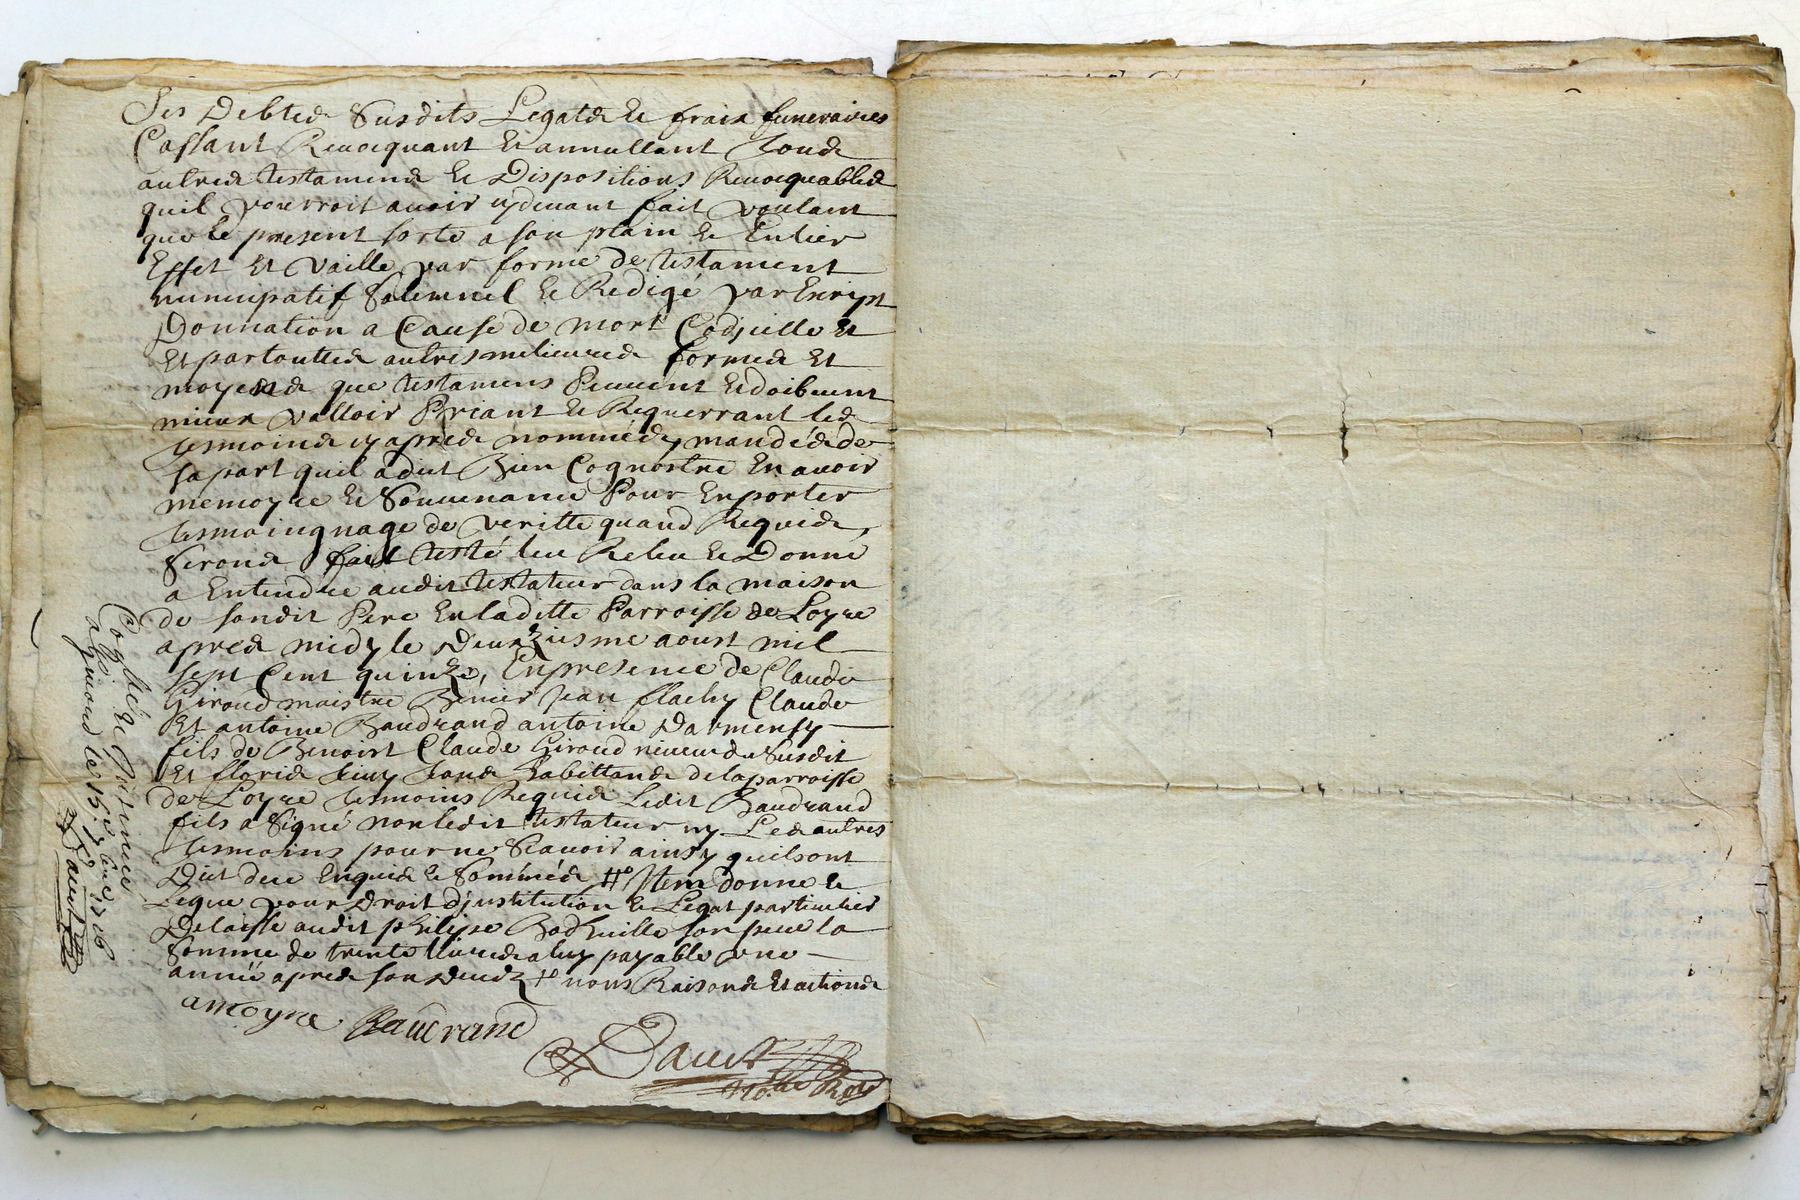 Ses Debtes Susdits Legats Et fraix funeraires
Cassant Reuocquant Et annullant Tous
autres testamens Et Dispositions Reuocquables
quil pourroit auoir cydeuant fait voulant
que le present sorte a son plain Et Entier
Effet Et Vaille par forme de testament
nuncupatif Solemnel Et Redigé par Escript
Donnation a Cause de mort Codicille Et
Et par touttes autres milieures formes Et
moyens que testamens Peuuent Et doibuent
mieux valloir Priant Et Requerrant les
tesmoins cy apres nommés, mandés de
sa part quil a dit Bien Cognostre En auoir
memoyre Et Souuenance Pour En porter
tesmoingnage de veritte quand Requis
Seront fait testé leu Releu Et Donné
a Entendre audit testateur dans la maison
de sondit Pere En laditte Parroisse de Loyre
apres midy le Deuxziesme aoust mil
sept Cent quinze, En presence de Claude
Giroud maistre Jean flachy Claude
Et antoine Baudrand antoine Darmensy
fils de Benoist Claude Giroud nineu du Susdit
Et floris tous habittans de la parroisse
de Loyre tesmoins Requis Ledit Baudrand
fils a Signé non ledit testateur ny Les autres
tesmoins pour ne Scauoir ainsy quils ont
Dit de ce Enquis Et Sommés # Item donne Et
Legue pour Droit d'institution Et Legat particulier
Delaisse audit philipe son pere la
Somme de trente liures a luy payable une
année apres son deceds # nons Raisons Et actions
antoyne Baudrand
Dauet
No.re Royal
Coll.é Et
le 15.e 1716